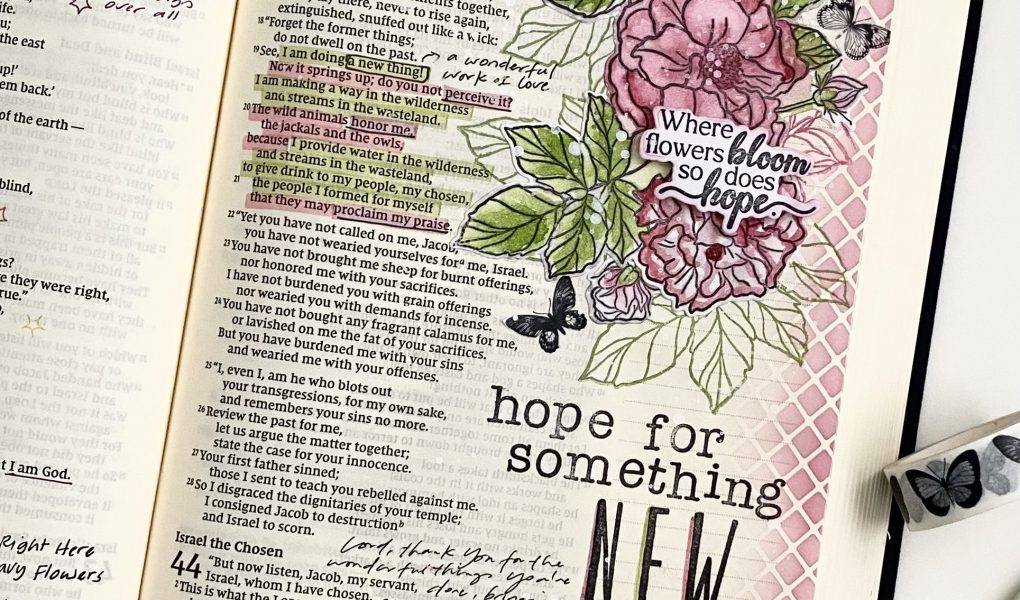 ife.
the east
up!'
em back.'
of the earth —
blind,
gs?
e they were right,
rue."
t I am God.
Right Here
avy Flowers
over all
there, never to rise again,
extinguished, snuffed out like a wick:
18 "Forget the former things;
do not dwell on the past.
19 See, I am doing a new thing!
Now it springs up; do you not perceive it?
I am making a way in the wilderness
and streams in the wasteland.
20 The wild animals honor me,
the jackals and the owls,
because I provide water in the wilderness
and streams in the wasteland,
to give drink to my people, my chosen,
21 the people I formed for myself
that they may proclaim my praise.
a wonderful
work of love
22 "Yet you have not called on me, Jacob,
you have not wearied yourselves for a me, Israel.
23 You have not brought me sheep for burnt offerings,
nor honored me with your sacrifices.
I have not burdened you with grain offerings
nor wearied you with demands for incense.
24 You have not bought any fragrant calamus for me,
or lavished on me the fat of your sacrifices.
But you have burdened me with your sins
and wearied me with your offenses.
25 "I, even I, am he who blots out
your transgressions, for my own sake,
and remembers your sins no more.
26 Review the past for me,
let us argue the matter together;
state the case for your innocence.
27 Your first father sinned;
those I sent to teach you rebelled against me.
28 So I disgraced the dignitaries of your temple;
I consigned Jacob to destruction b
and Israel to scorn.
Israel the Chosen
44 "But now listen, Jacob, my servant,
Israel, whom I have chosen.
2 This is what the
Lord, thank you for the
wonderful things you're
Where
flowers bloom
so does
hope.
hope for
something
NEW